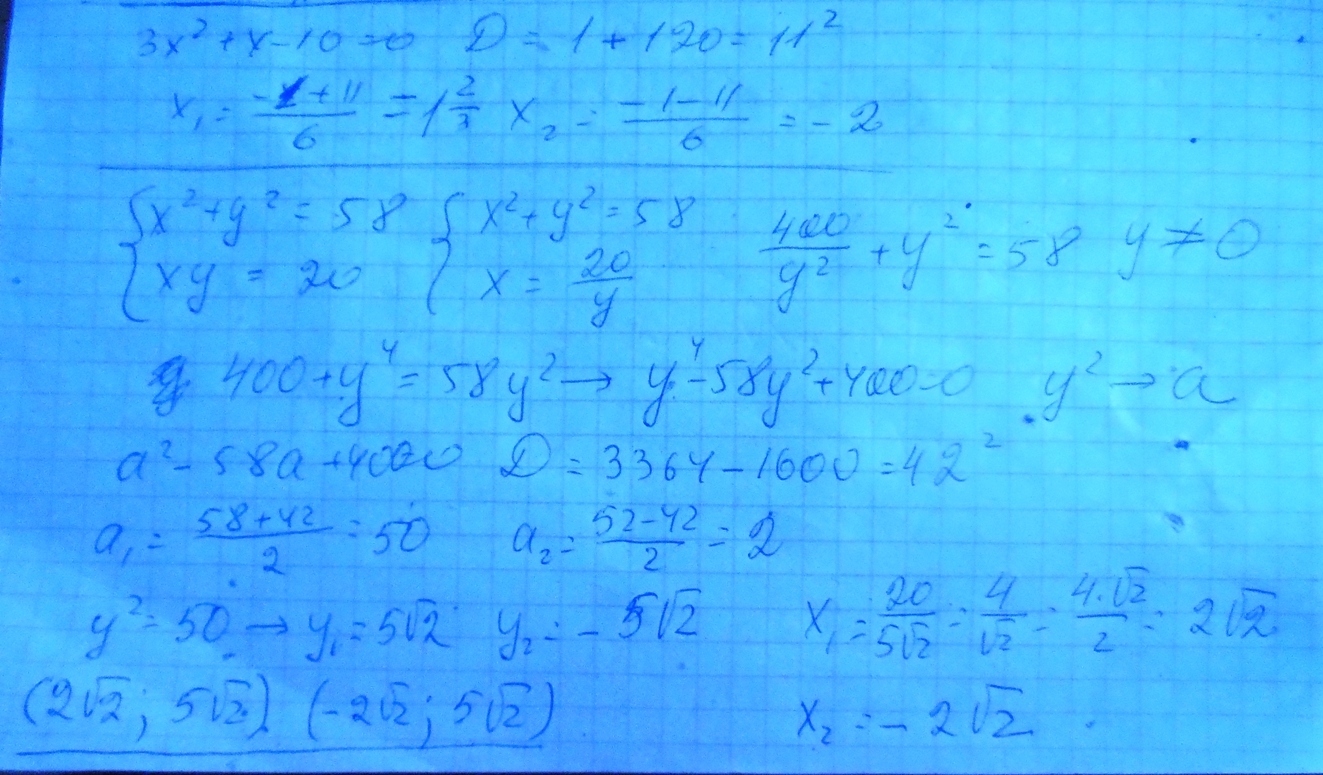 3x² + x - 10 = 0 D = 1 + 120 = 11²
x₁ = (-1 + 11)/6 = 1 2/3 x₂ = (-1 - 11)/6 = -2
{x² + y² = 58 {x² + y² = 58 400/y² + y² = 58 y ≠ 0
{xy = 20 {x = 20/y
400 + y⁴ = 58y² → y⁴ - 58y² + 400 = 0 y² → a
a² - 58a + 400 = 0 D = 3364 - 1600 = 42²
a₁ = (58 + 42)/2 = 50 a₂ = (52 - 42)/2 = 2
y² = 50 → y₁ = 5√2 y₂ = -5√2 x₁ = 20/(5√2) = 4/√2 = (4·√2)/2 = 2√2
(2√2; 5√2) (-2√2; 5√2) x₂ = -2√2